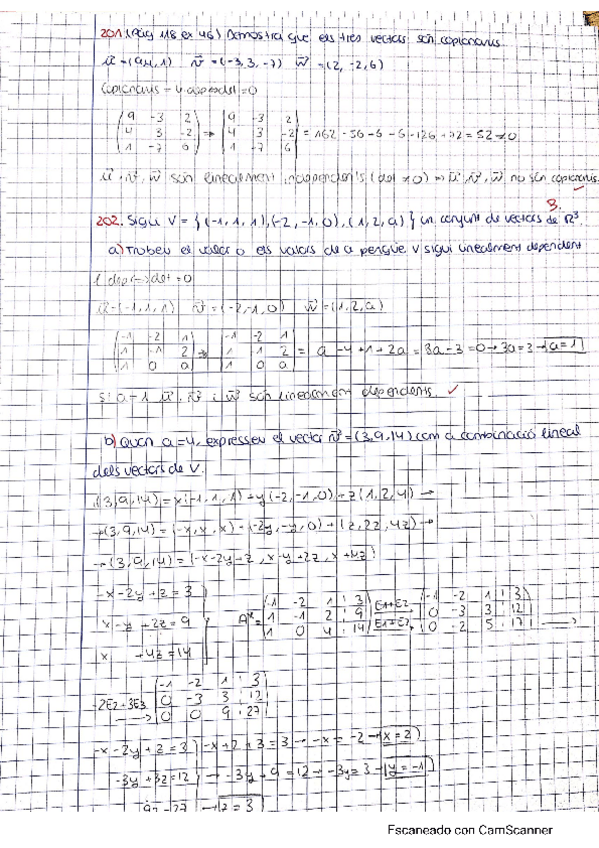 201. (Pàg 118 ex 46) Demostra que els tres vectors són coplanaris.
u = (9,4,1) v = (-3,3,-7) w = (2,-2,6)
Coplanaris → det = 0
( 9 -3 2 | 9 -3 2
4 3 -2 → 4 3 -2 = 162 - 56 - 6 - 6 - 126 + 72 = 52 ≠ 0
1 -7 6 ) 1 -7 6 |
u, v, w són linealment independents (det ≠ 0) → u, v, w no són coplanaris.
3.
202. Sigui V = {(-1,1,1), (-2,-1,0), (1,2,a)} un conjunt de vectors de R³.
a) Trobeu el valor o els valors de a perquè V sigui linealment dependent
l dep → det = 0
u = (-1,1,1) v = (-2,-1,0) w = (1,2,a)
-1 -2 1 -1 -2 1
1 -1 2 → 1 -1 2 = a - 4 + 1 + 2a = 3a - 3 = 0 → 3a = 3 → a = 1
1 0 a 1 0 a
Si a = 1 u, v i w són linealment dependents. ✓
b) Quan a = 4, expresseu el vector v = (3,9,14) com a combinació lineal
dels vectors de V.
(3,9,14) = x(-1,1,1) + y(-2,-1,0) + z(1,2,4) →
→ (3,9,14) = (-x,x,x) + (-2y,-y,0) + (z,2z,4z) →
→ (3,9,14) = (-x-2y+z, x-y+2z, x+4z)
-x - 2y + z = 3
x - y + 2z = 9
x + 4z = 14
-1 -2 1 : 3 -1 -2 1 : 3
A* = 1 -1 2 : 9 E1+E2 0 -3 3 : 12
1 0 4 : 14 E1+E3 0 -2 5 : 17 →
-1 -2 1 : 3
-2E2+3E3 0 -3 3 : 12
→ 0 0 9 : 27
-x - 2y + z = 3 -x + 2 + 3 = 3 → -x = -2 → x = 2
-3y + 3z = 12 → -3y + 9 = 12 → -3y = 3 → y = -1
9z = 27 → z = 3
Escaneado con CamScanner